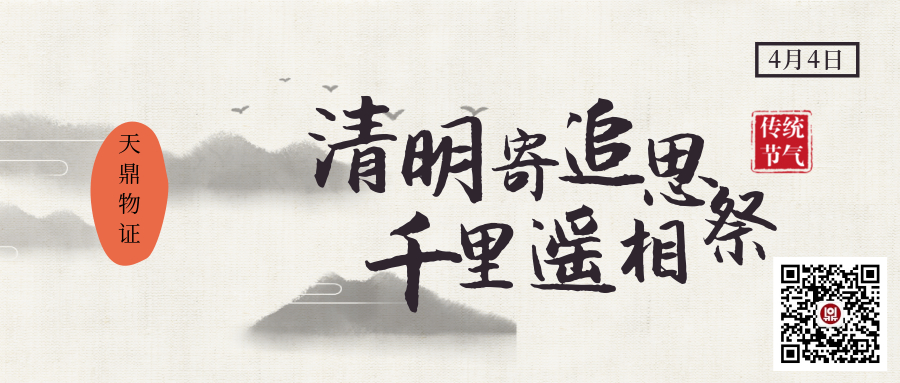 4月4日
传统
节气
清明寄追思
千里遥相祭
天鼎物证